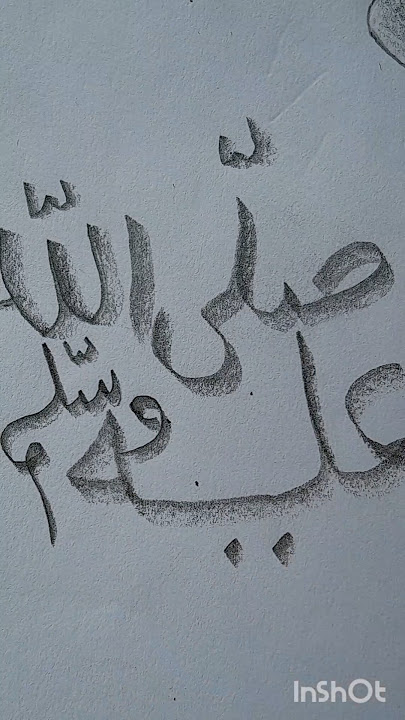 صلّى اللّه
عليه وسلّم
InShOt